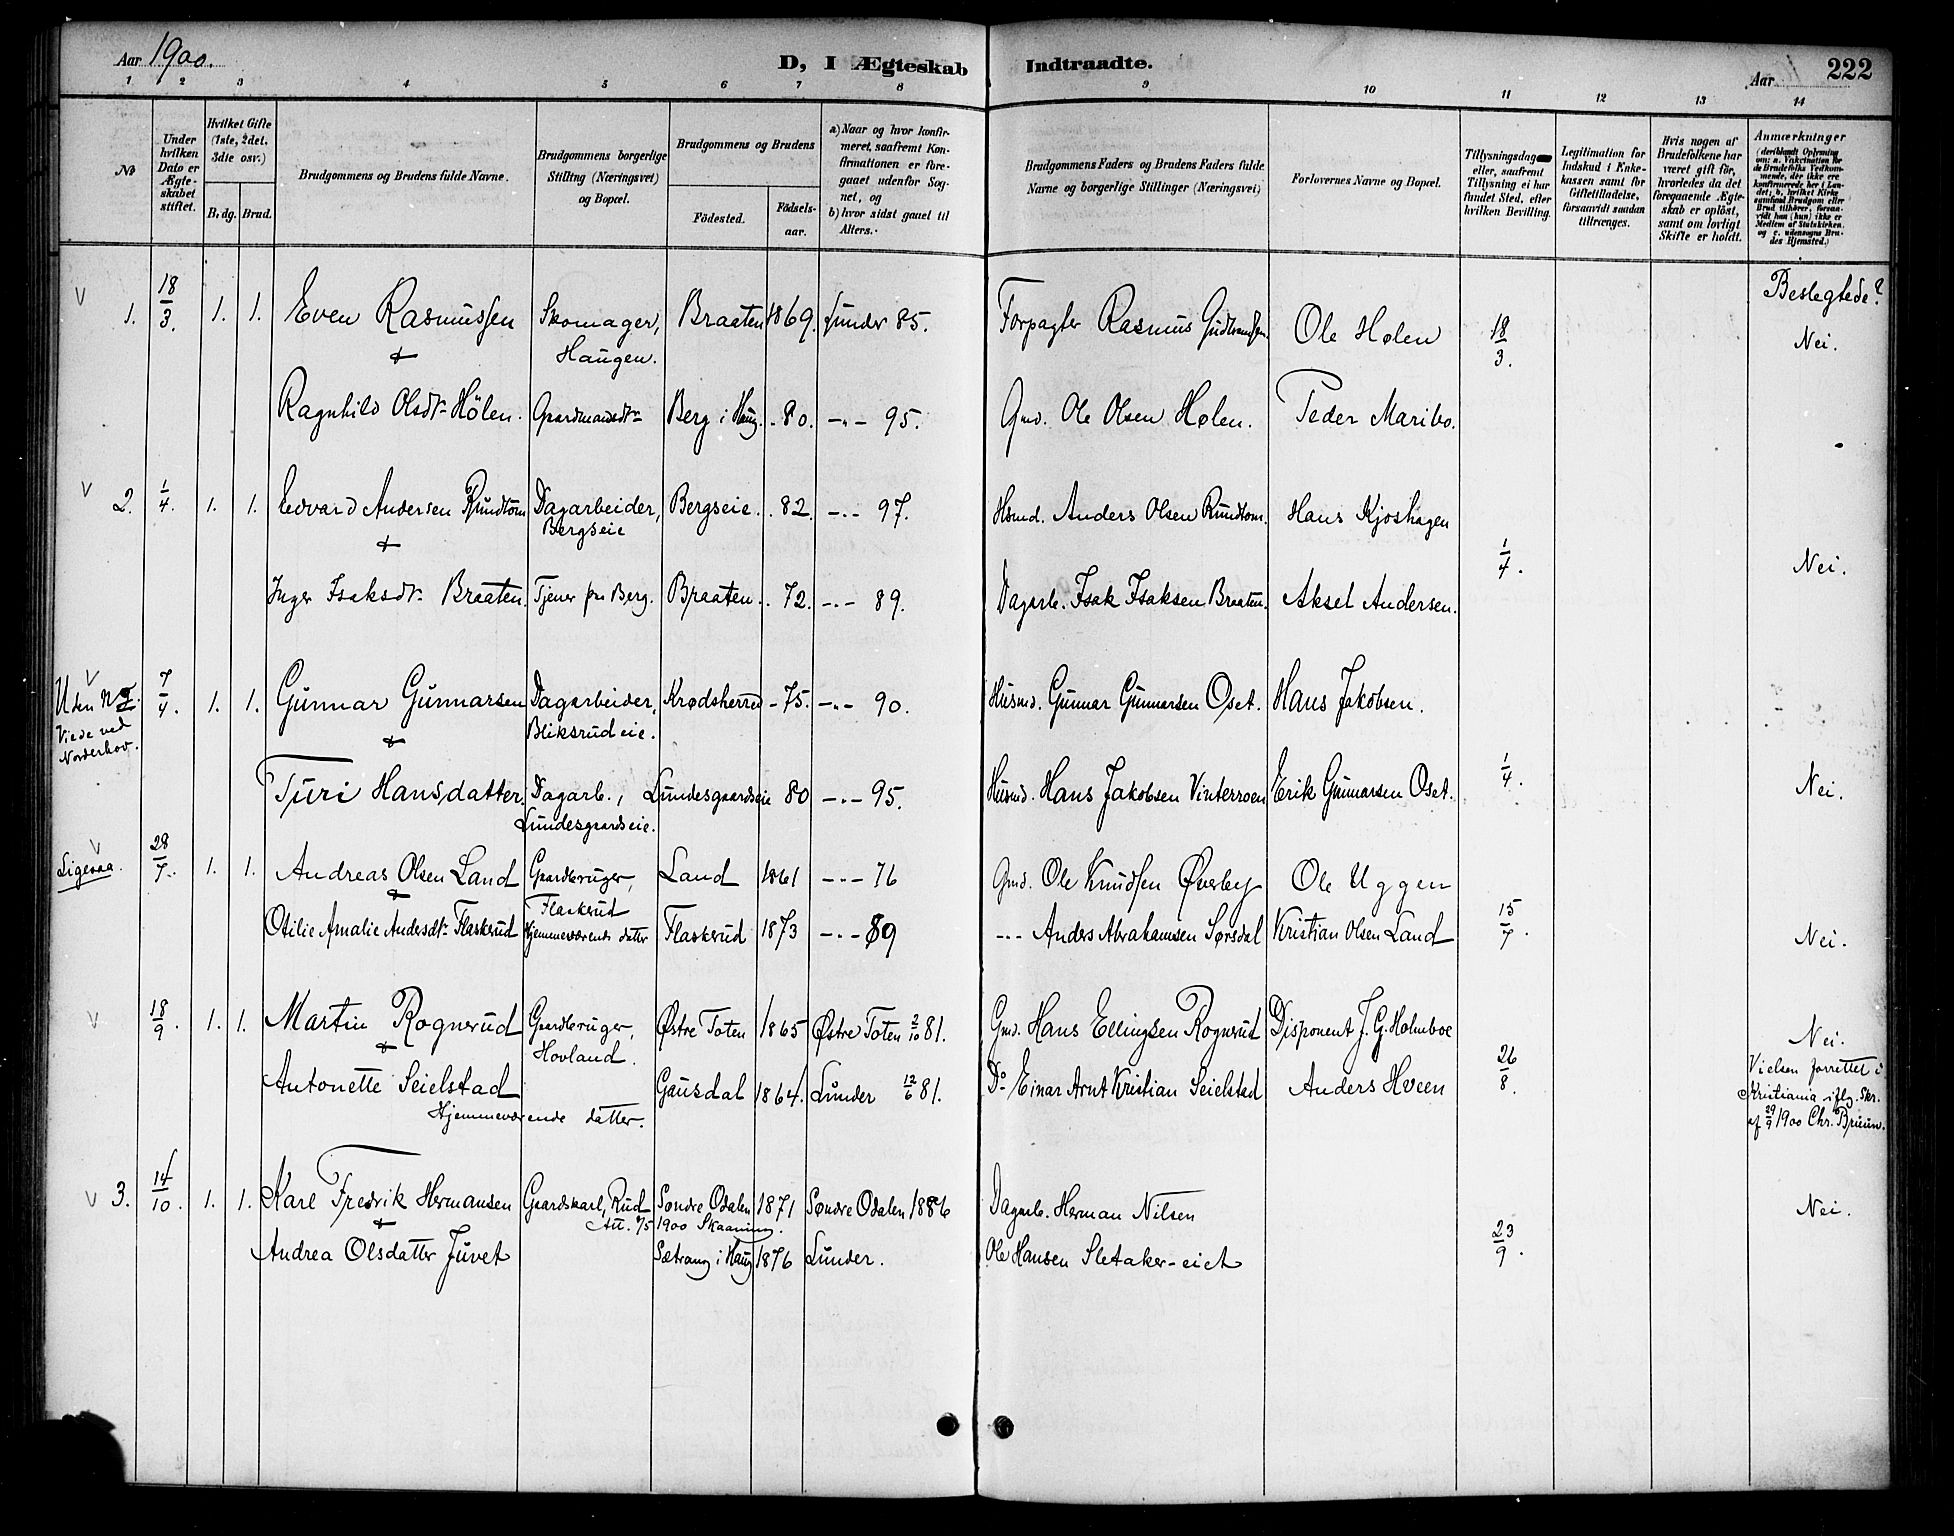 Aar 1900.
D, I Ægteskab Indtraadte.
Aar 222
1 2 3 4 5 6 7 8 9 10 11 12 13 14
No
Under hvilken Dato er Ægteskabet stiftet.
Hvilket Gifte (1ste, 2det, 3die osv.)
B.dg. Brud.
Brudgommens og Brudens fulde Navne.
Brudgommens borgerlige Stilling (Næringsvei) og Bopæl.
Brudgommens og Brudens
Födested. Födsels-aar.
a) Naar og hvor konfirmeret, saafremt Konfirmationen er foregaaet udenfor Sognet, og
b) hvor sidst gaaet til Alters.
Brudgommens Faders og Brudens Faders fulde Navne og borgerlige Stillinger (Næringsvei)
Forlovernes Navne og Bopæl.
Tillysningsdag eller, saafremt Tillysning ei har fundet Sted, efter hvilken Bevilling.
Legitimation for Indskud i Enkekassen samt for Giftetilladelse, forsaavidt saadan tiltrænges.
Hvis nogen af Brudefolkene har været gift för, hvorledes da det foregaaende Ægteskab er oplöst, samt om lovligt Skifte er holdt.
Anmærkninger
(deriblandt Oplysning om: a. Vakcination for de Brudefolks Vedkommende, der ikke ere konfirmerede her i Landet; b. hvilket Kirkesamfund Brudgom eller Brud tilhörer, forsaavidt han (hun) ikke er Medlem af Statskirken, og c. udensogns Brudes Hjemsted.)
Beslegtede?
1. 18/3. 1. 1. Even Rasmussen Skomager, Braaten 1869. Lunder 85. Forpagter Rasmus Ole Hølen 18/3. Nei.
& Haugen.
Ragnhild Olsdtr Hölen. Gaardmandsdtr Berg i Haug. - 80. -"- 95. Gmd. Ole Olsen Hølen. Peder Maribo.
2. 1/4. 1. 1. Edvard Andersen Rundtom Dagarbeider, Bergseie. . 82. -"- 97. Hsmd. Anders Olsen Rundtom. Hans Kjoshagen
& Bergseie 1/4. Nei.
Inger Isaksdtr Braaten. Tjener paa Berg. Braaten. . 72. -"- 89. Dagarb. Isak Isaksen Braaten. Aksel Andersen.
Uden No. 7/4. 1. 1. Gunnar Gunnarsen Dagarbeider, Krødsherred - 75. -"- 90. Husmd. Gunnar Gunnarsen Oset. Hans Jakobsen.
Viede ved Norderhov. & Bliksrudeie.
Turi Hansdatter. Dagarb., Lundesgaardseie 80 -"- 95. Husmd. Hans Jakobsen Vinterroen Erik Gunnarsen Oset. 1/4. Nei.
Lundesgaardseie.
Ligesaa. 28/7. 1. 1. Andreas Olsen Land Gaardbruger, Land 1861 -"- 76 Gmd. Ole Knudsen Øverby Ole Uggen
& Flaskrud 15/7.
Otilie Amalie Andersdtr Flaskrud Hjemmeværende datter Flaskrud 1873 -"- 89 -"- Anders Abrahamsen Sørsdal Kristian Olsen Land Nei.
18/9. 1. 1. Martin Rognerud Gaardbruger, Østre Toten 1865 Østre Toten 2/10 81. Gmd. Hans Ellingsen Rognerud Disponent J. G. Holmboe Nei.
& Hovland. 26/8.
Antonette Seielstad Gausdal 1864. Lunder 12/6 81. Do Einar Arnt Kristian Seielstad Anders Hveen Vielsen forrettet i
Hjemmeværende datter. Kristiania iflg. Skr.
af 29/9 1900 Chr. Bruun.
3. 14/10. 1. 1. Karl Fredrik Hermansen Gaardskarl, Rud Søndre Odalen 1871 Søndre Odalen 1886 Dagarb. Herman Nilsen Nei.
& Att. 4/5 1900 Skaaning. 23/9.
Andrea Olsdatter Juvet Sætrang i Haug 1876 Lunder. Ole Hansen Sletaker-eiet